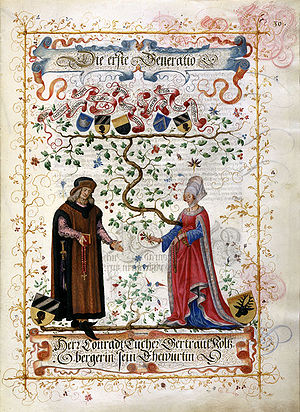 Die erste Generatio
30
Herr Conradt Tucher Gertraut Kolß
bergerin sein Ehewurtin